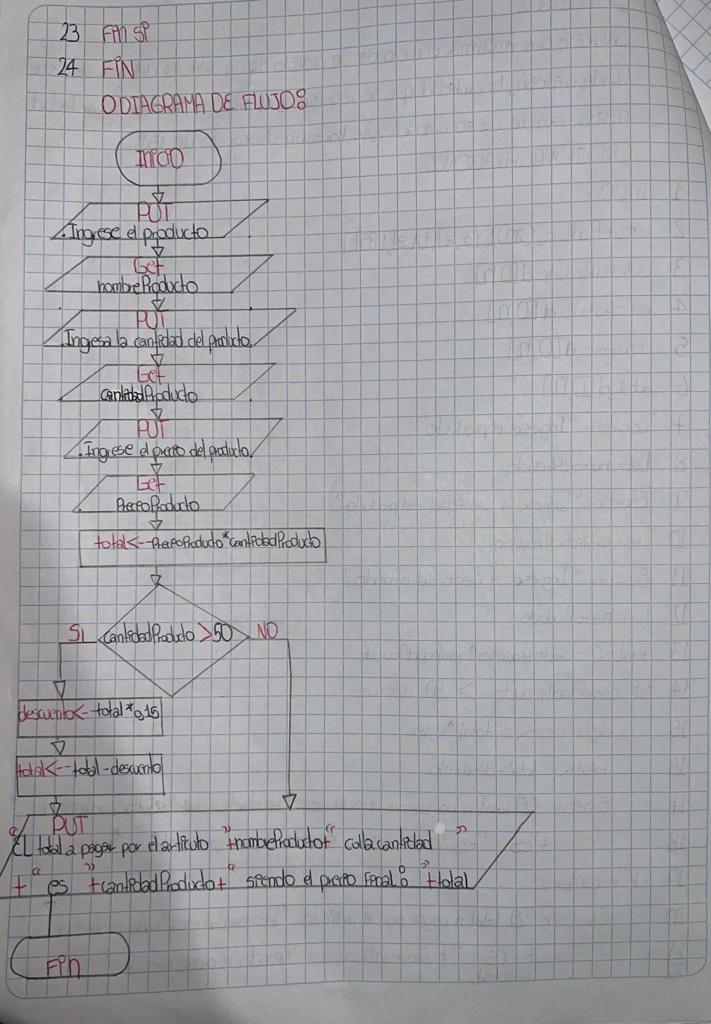 23 FIN SI
24 FIN
ODIAGRAMA DE FLUJO:
INICIO
PUT
"Ingrese el producto
Get
nombreProducto
PUT
"Ingresa la cantidad del producto"
Get
cantidadProducto
PUT
"Ingrese el precio del producto"
Get
PrecioProducto
total<--PrecioProducto*cantidadProducto
SI cantidadProducto >50 NO
descuento<-total*0.15
total<--total-descuento
PUT
"EL total a pagar por el articulo "+nombreProducto+" con la cantidad "
+" es "+cantidadProducto+" siendo el precio final: "+total
FIN